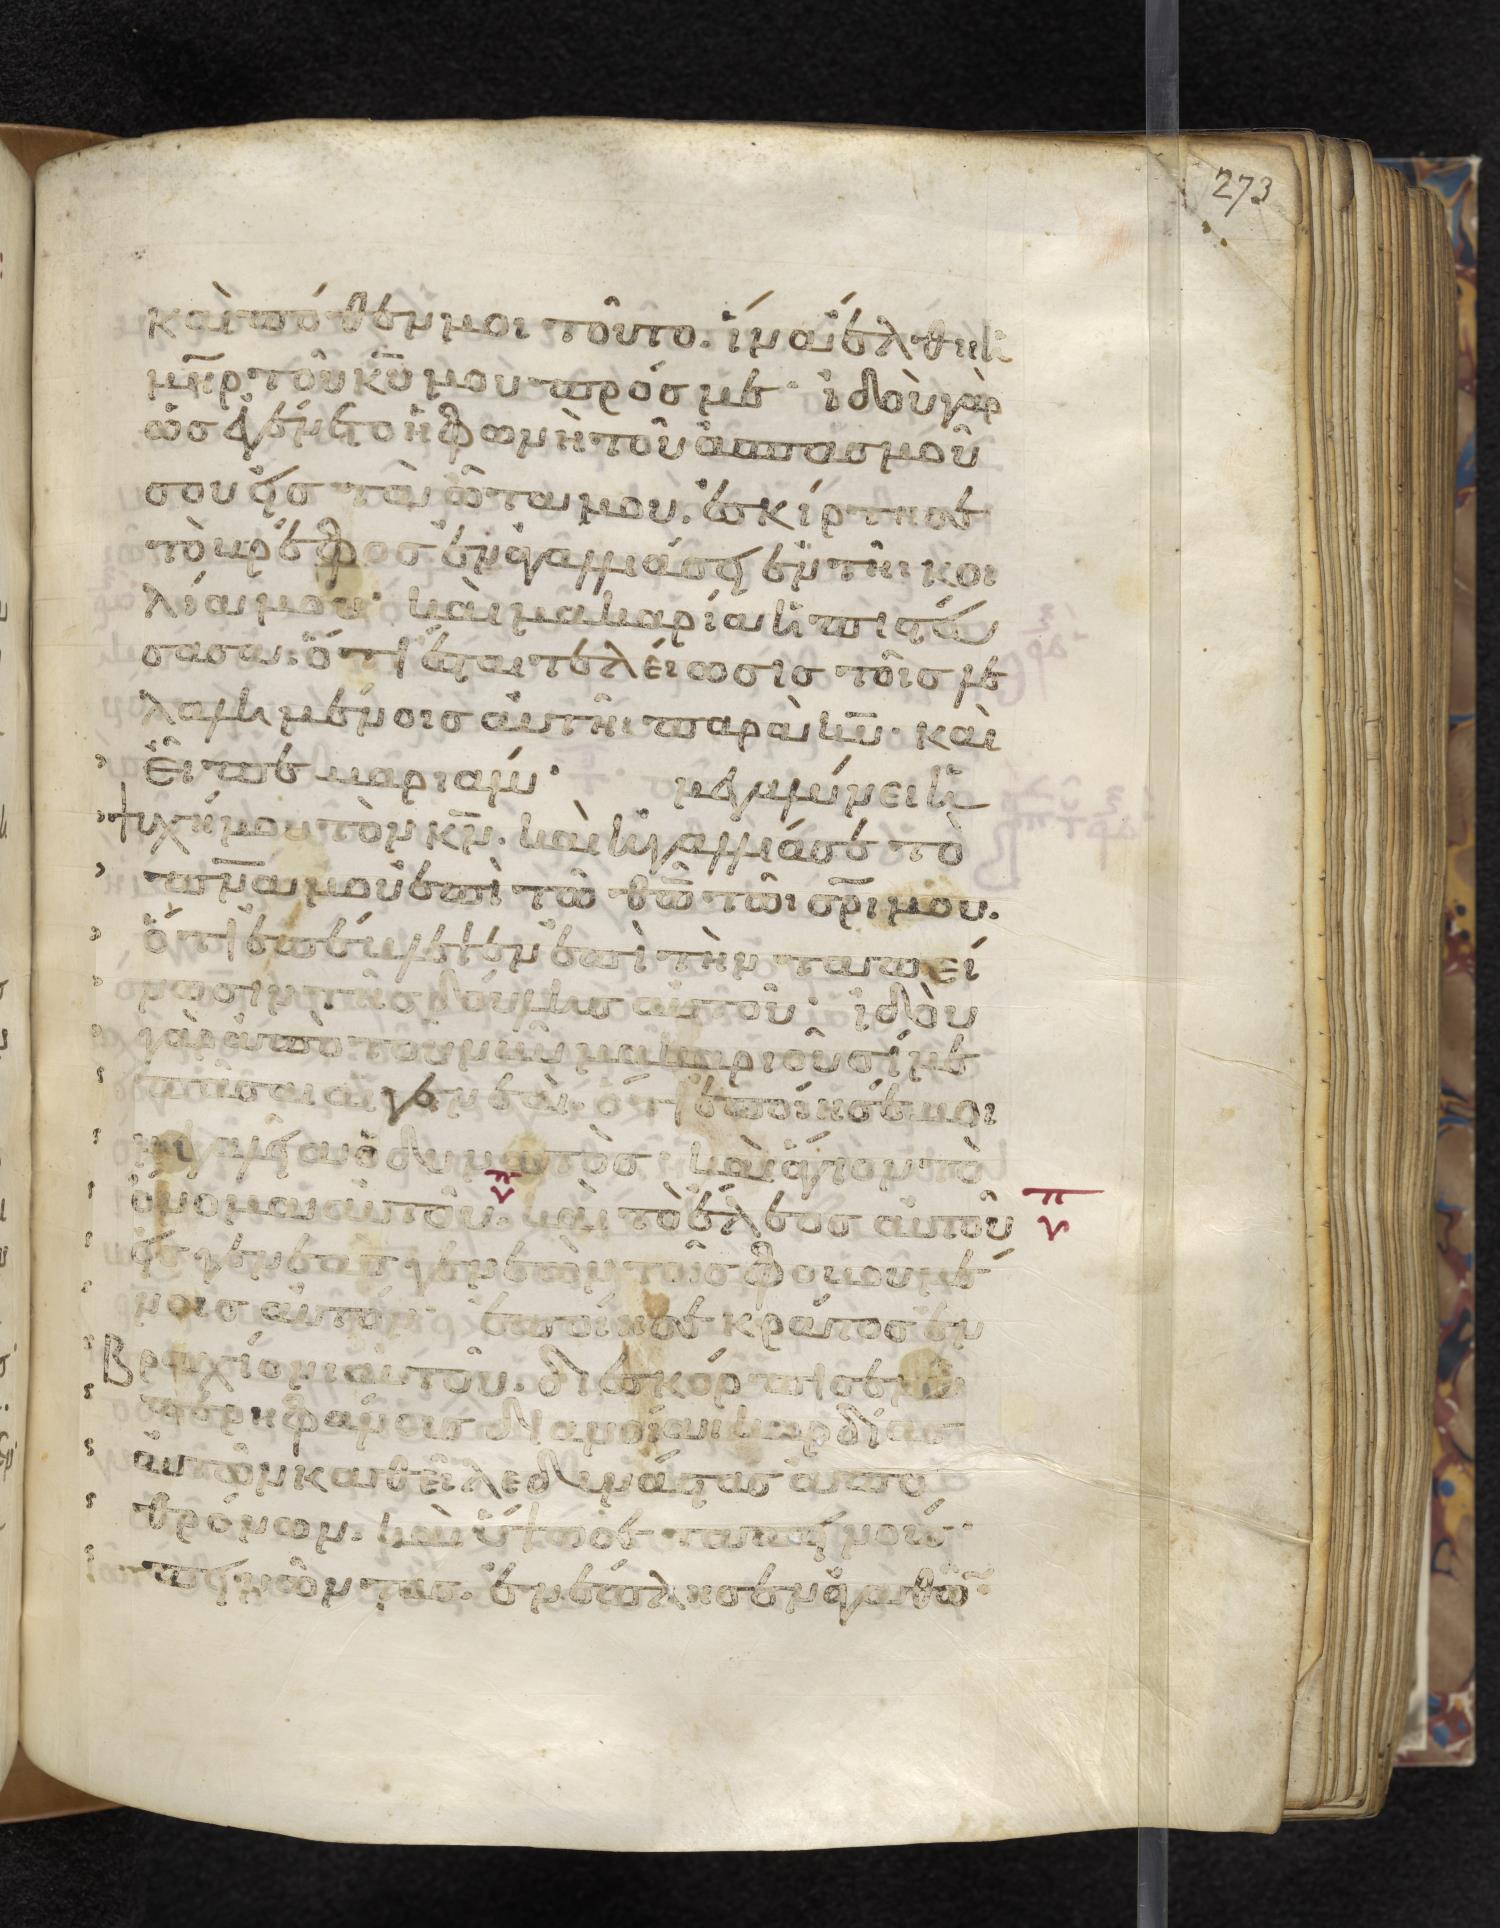 273
καὶ πόθεν μοι τοῦτο. ἵνα ἔλθη ἡ
μη̅ρ τοῦ κ̅υ̅ μου πρός με· ἰδοὺ γὰρ
ὡς ἐγένετο ἡ φωνὴ τοῦ ἀσπασμοῦ
σου εἰς τὰ ὦτα μου. ἐσκίρτησε
τὸ βρέφος ἐν ἀγαλλιάσει ἐν τῆι κοι
λία μου· καὶ μακαρία ἡ πιστεύ
σασα. ὅτι ἔσται τελείωσις τοῖς λε
λαλημένοις αὐτῆι παρὰ κ̅υ̅· καὶ
εἶπε μαριάμ· μεγαλύνει ἡ
ψυχή μου τὸν κ̅ν̅. καὶ ἠγαλλίασε τὸ
π̅ν̅α̅ μου ἐπὶ τῶ θ̅ω̅ τῶι σ̅ρ̅ι μου.
ὅτι ἐπέβλεψεν ἐπὶ τὴν ταπεί
νωσιν τῆς δούλης αὐτοῦ· ἰδοὺ
γὰρ ἀπὸ τοῦ νῦν μακαριοῦσί με
πᾶσαι αἱ γενεαί. ὅτι ἐποίησέ μοι
μεγαλεῖα ὁ δυνατὸς· καὶ ἅγιον τὸ
ὄνομα αὐτοῦ. καὶ τὸ ἔλεος αὐτοῦ
εἰς γενεὰς γενεῶν τοῖς φοβουμέ
νοις αὐτόν· ἐποίησε κράτος ἐν
βραχίονι αὐτοῦ. διεσκόρπισεν ὑ
περηφάνους διανοία καρδίας
αὐτῶν καθεῖλε δυνάστας ἀπο
θρόνων. καὶ ὕψωσε ταπεινούς·
πεινῶντας. ἐνέπλησεν ἀγαθῶ̅·